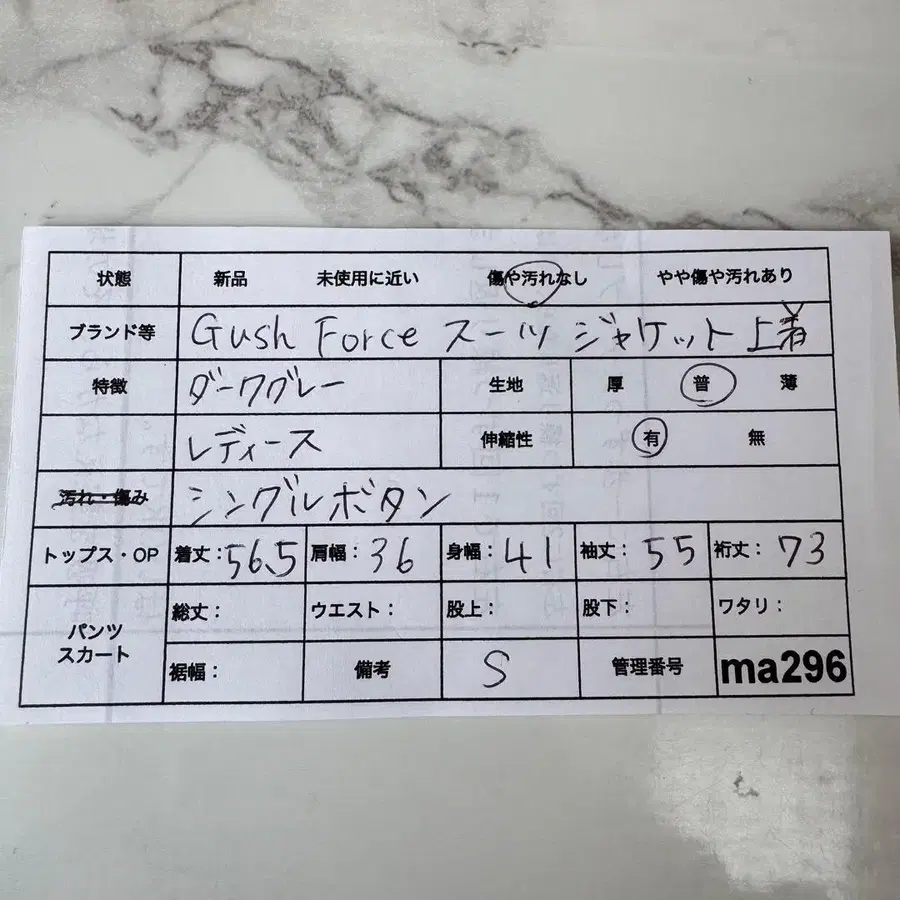 状態 新品 未使用に近い 傷や汚れなし やや傷や汚れあり
ブランド等 Gush Force スーツ ジャケット 上着
特徴 ダークグレー 生地 厚 普 薄
レディース 伸縮性 有 無
汚れ・傷み シングルボタン
トップス・OP 着丈:56.5 肩幅:36 身幅:41 袖丈:55 裄丈:73
パンツ スカート 総丈: ウエスト: 股上: 股下: ワタリ:
裾幅: 備考 S 管理番号 ma296